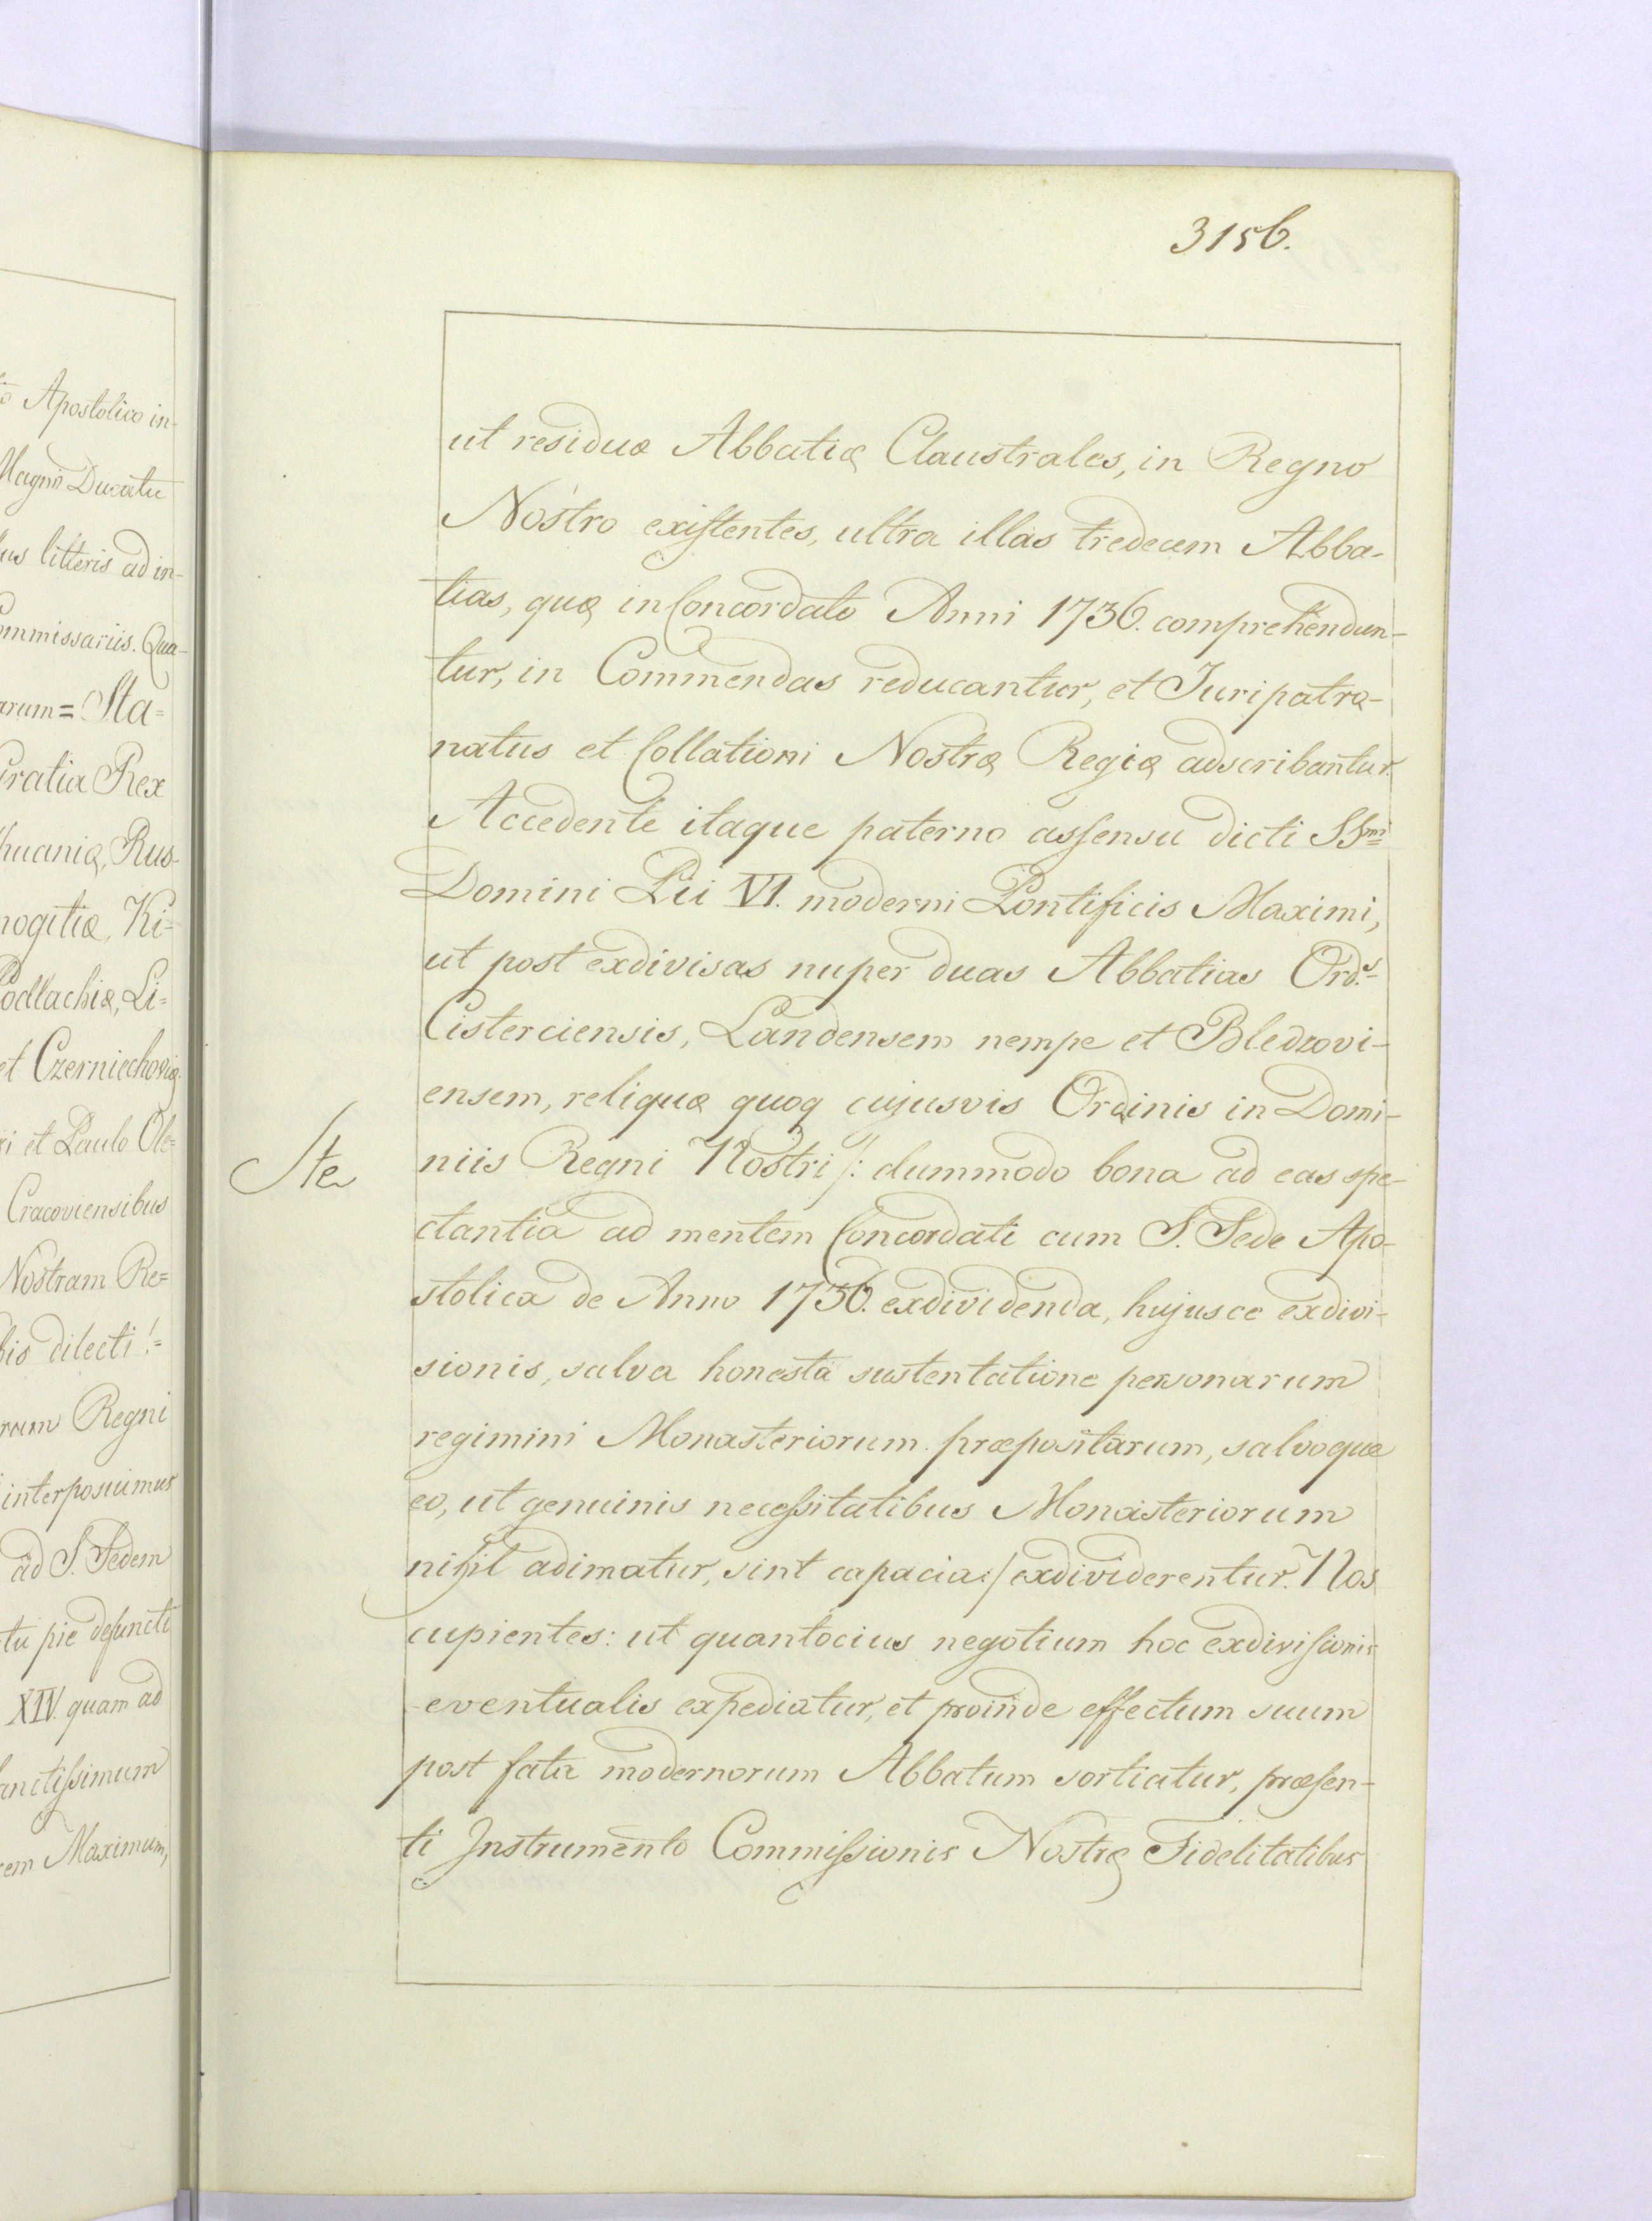 3156.
ut residuæ Abbatiæ Claustrales, in Regno
Nostro existentes, ultra illas tredecem Abba-
tias, quæ in Concordato Anni 1736. comprehendun-
tur, in Commendas reducantur, et Juripatro-
natus et Collationi Nostræ Regiæ adscribantur.
Accedente itaque paterno assensu dicti SSmi
Domini Pii VI. moderni Pontificis Maximi,
ut post exdivisas nuper duas Abbatias Ords
Cisterciensis, Landensem nempe et Bledzovi-
ensem, reliquæ quoq cujusvis Ordinis in Domi-
niis Regni Nostri /: dummodo bona ad eas spe-
ctantia ad mentem Concordati cum S. Sede Apo-
stolica de Anno 1736. exdividenda, hujusce exdivi-
sionis, salva honesta sustentatione personarum
regimini Monasteriorum præpositarum, salvoque
eo, ut genuinis necessitatibus Monasteriorum
nihil adimatur, sint capacia :/ exdividerentur. Nos
cupientes: ut quantocius negotium hoc exdivisionis
eventualis expediatur, et proinde effectum suum
post fata modernorum Abbatum sortiatur, præsen-
ti Instrumento Commissionis Nostræ Fidelitatibus
Ste
Apostolico in-
Magno Ducatu
litteris ad in-
ommissariis. Qua-
arum = Sta=
Gratia Rex
huaniæ, Rus-
mogitiæ, Ki=
Podlachiæ, Li=
et Czerniechoviæ
et Paulo Ole=
Cracoviensibus
Nostram Re=
bis dilecti!=
rum Regni
interposuimus
ad S. Sedem
tu pie defuncti
XIV. quam ad
anctissimum
em Maximum,